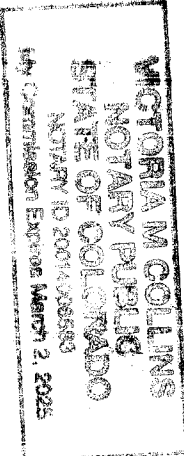 VICTORIA M COLLINS
NOTARY PUBLIC
STATE OF COLORADO
NOTARY ID
My Commission Expires March 2, 2025